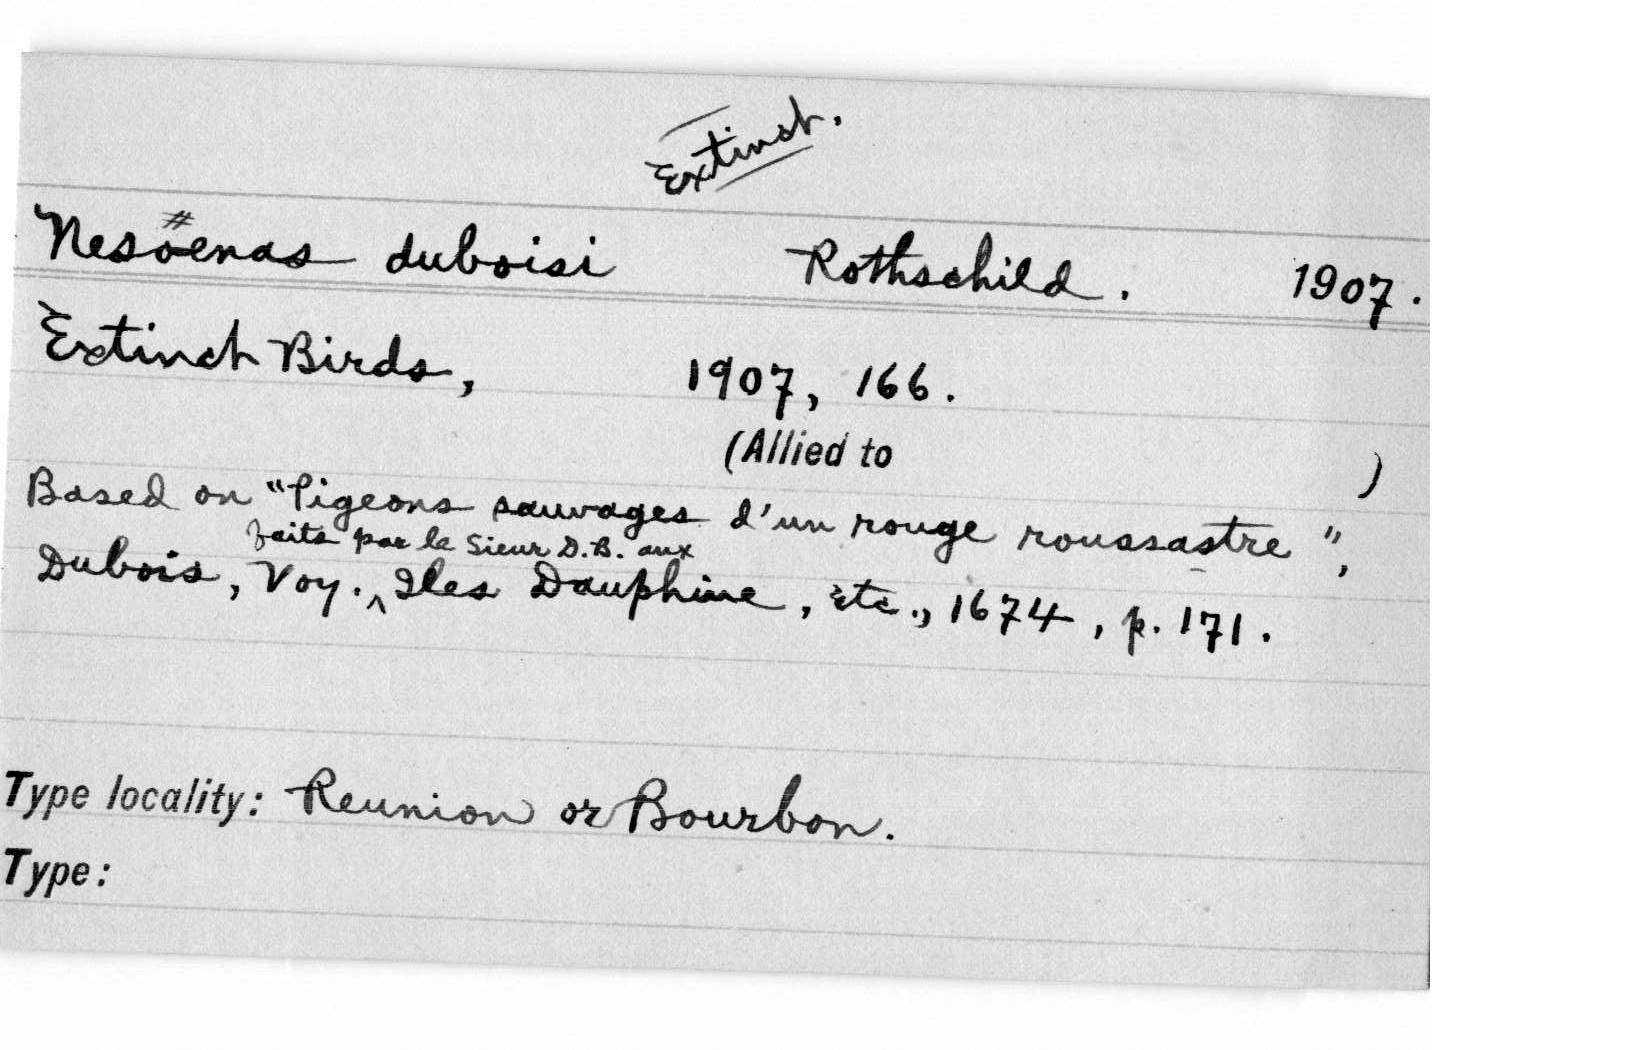 Extinct.
#
Nesöenas duboisi Rothschild. 1907.
Extinct Birds, 1907, 166.
(Allied to )
Based on "Pigeons sauvages d'un rouge roussastre",
faits par le Sieur D.B. aux
Dubois, Voy. ^ Iles Dauphine, etc., 1674, p. 171.
Type locality: Reunion or Bourbon.
Type: